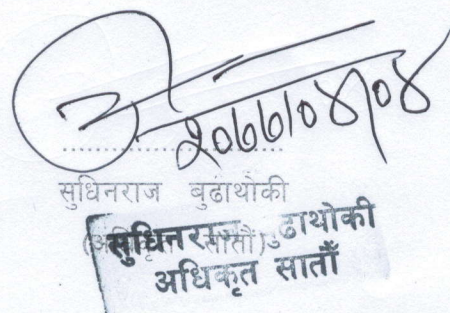 २०७७/०४/०४
सुधिनराज बुढाथोकी
(अधिकृत सातौं)
सुधिनराज बुढाथोकी
अधिकृत सातौँ